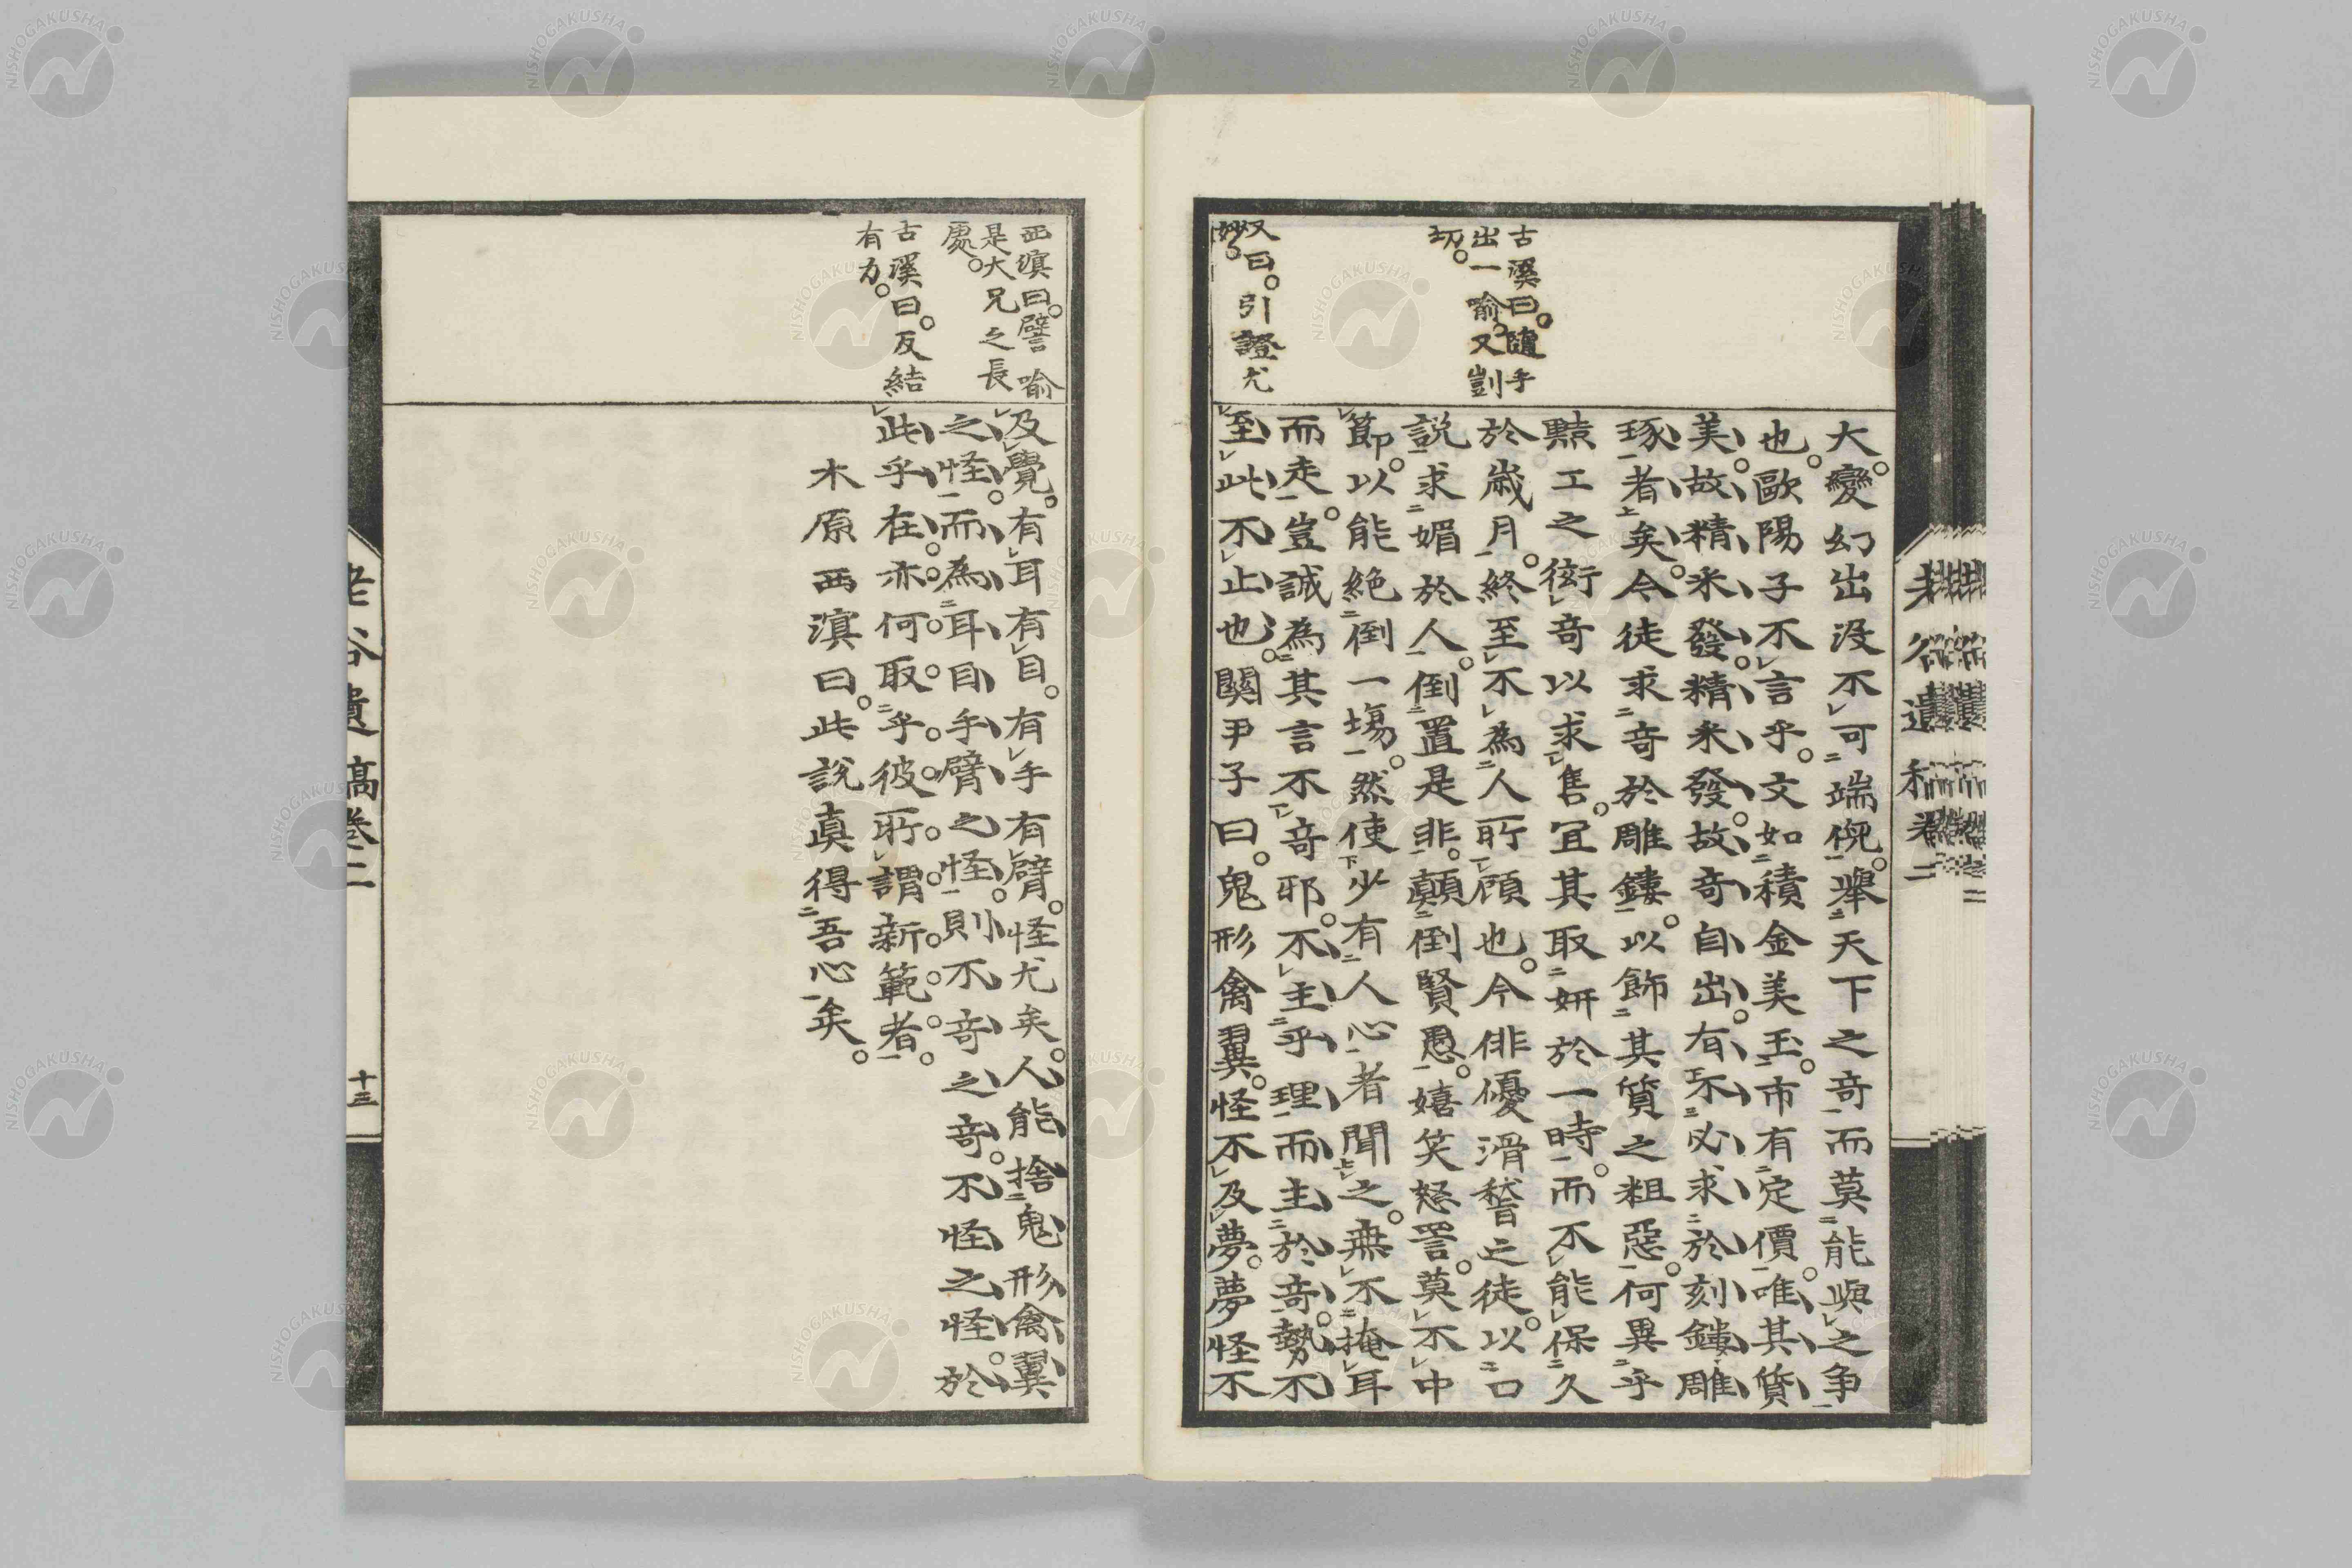 古溪曰。隨手
出一喻。又剴
切。
又曰。引證尤
妙。
大。變幻出没不可端倪。舉天下之奇而莫能與之爭
也。歐陽子不言乎。文如積金美玉。市有定價。唯其質
美。故精釆發。精釆發。故奇自出。有不必求於刻鏤雕
琢者矣。今徒求奇於雕鏤。以飾其質之粗惡。何異乎
黠工之衒奇以求售。冝其取妍於一時。而不能保久
於歳月。終至不為人所顧也。今俳優滑稽之徒。以口
説求媚於人。倒置是非。顛倒賢愚。嬉笑怒詈。莫不中
節。以能絶倒一場。然使少有人心者聞之。無不掩耳
而走。豈誠為其言不奇邪。不主乎理而主於奇。勢不
至此不止也。關尹子曰。鬼形禽翼。怪不及夢。夢怪不
西溟曰。譬喻
是大兄之長
處。
古溪曰。反結
有力。
及覺。有耳有目。有手有臂。怪尤矣。人能捨鬼形禽翼
之怪。而為耳目手臂之怪。則不奇之奇。不怪之怪。於
此乎在。亦何取乎彼所謂新範者。
木原西溟曰。此説真得吾心矣。
老谷遺稿卷二
十三